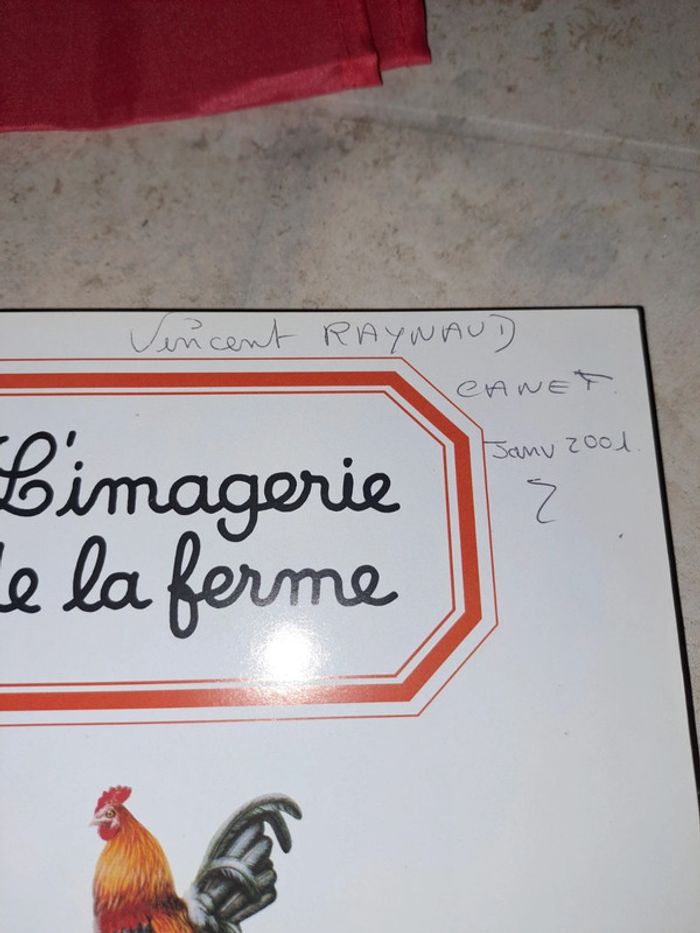 Vincent RAYNAUD
CANET.
Janv 2001.
L'imagerie
de la ferme